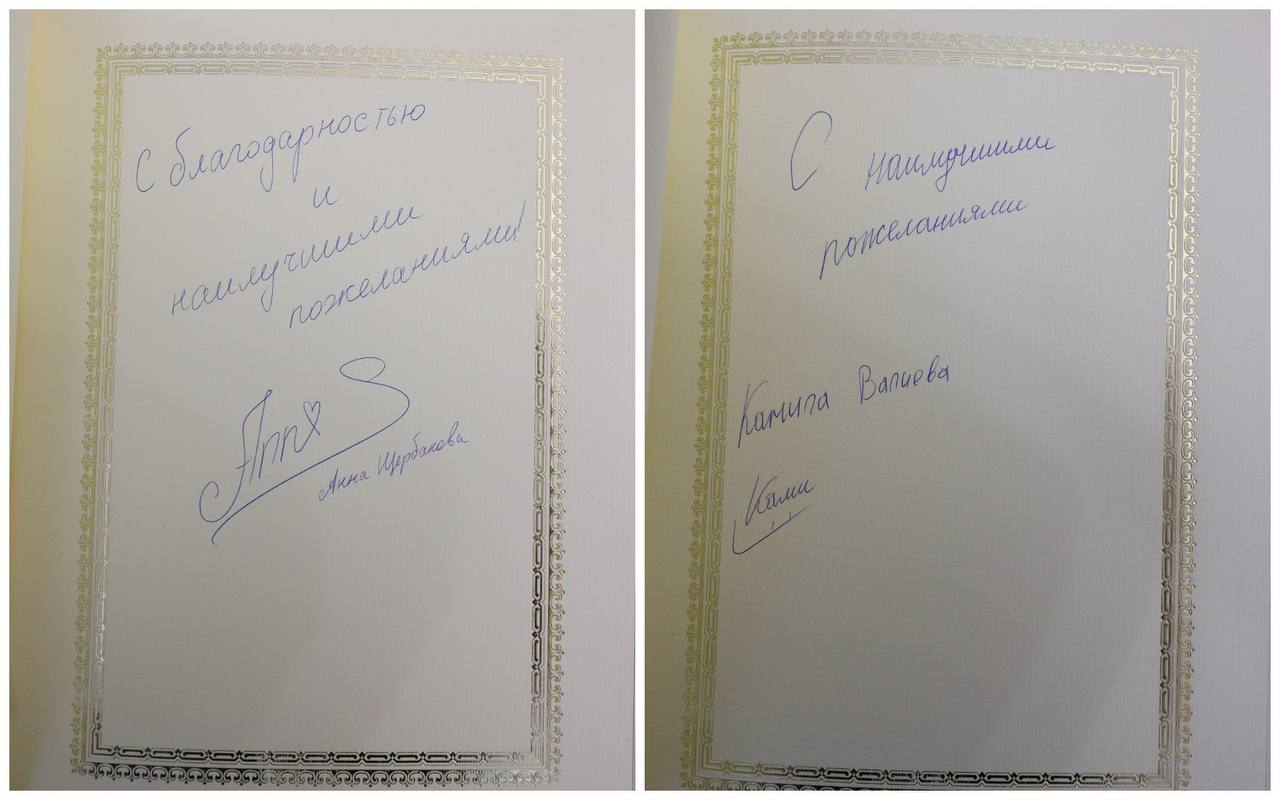 С благодарностью
и
наилучшими
пожеланиями!
Ann S
Анна Щербакова
С наилучшими
пожеланиями
Камила Валиева
Ками